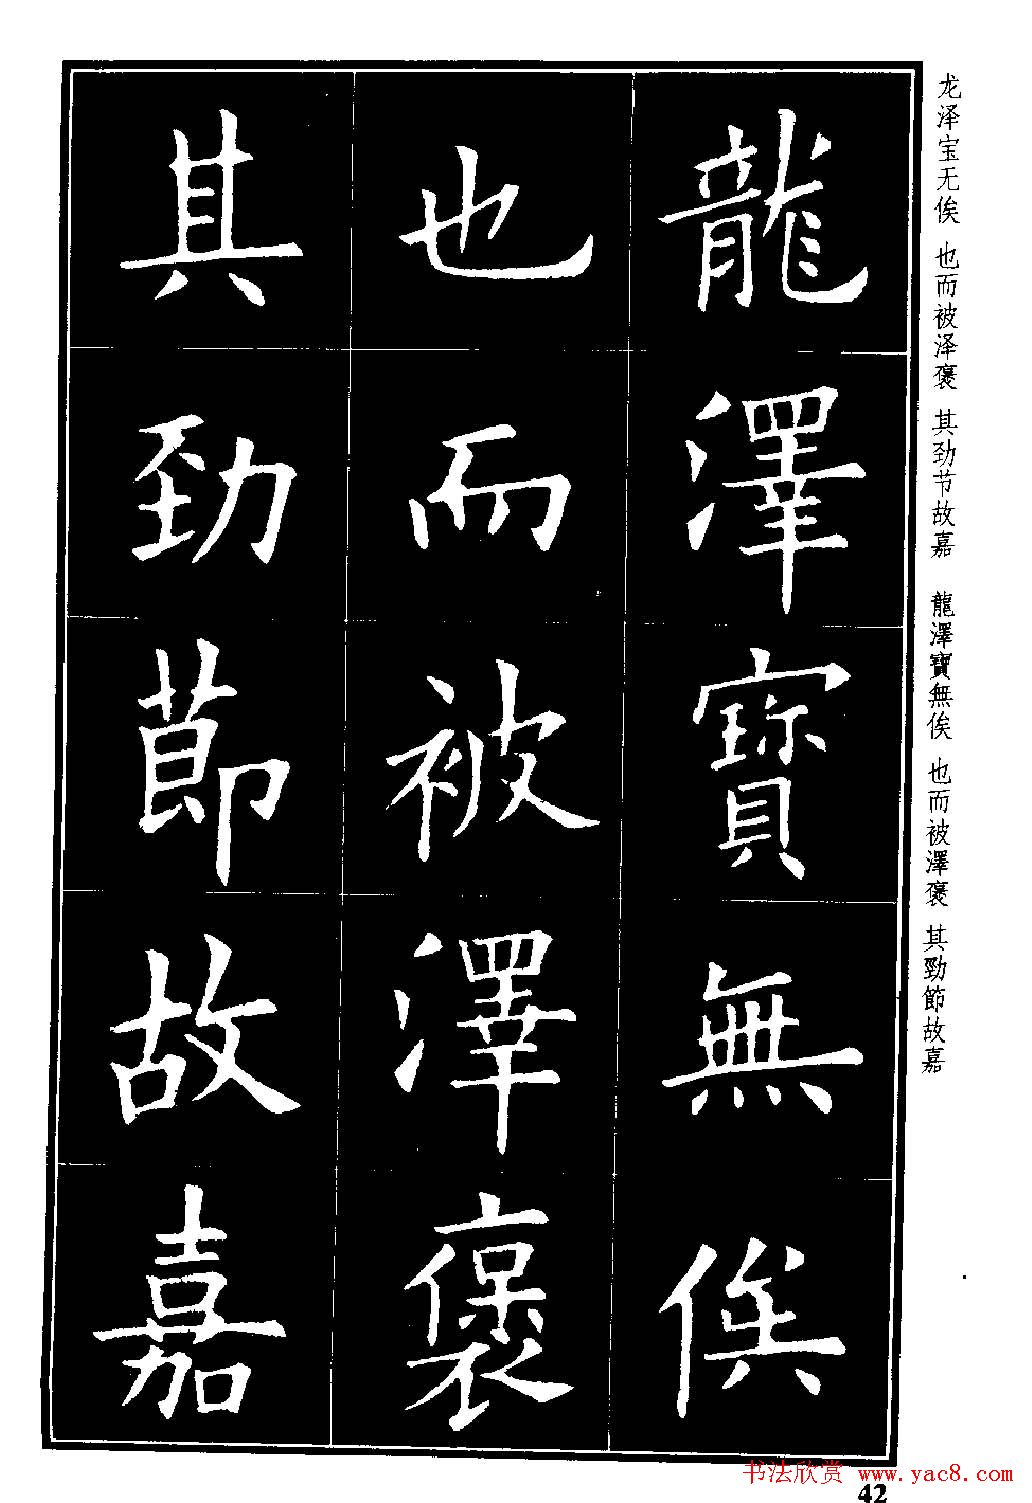 龍澤寶無俟
也而被澤襃
其勁節故嘉
龙泽宝无俟 也而被泽褒 其劲节故嘉 龍澤寶無俟 也而被澤褒 其勁節故嘉
书法欣赏 www.yac8.com
42